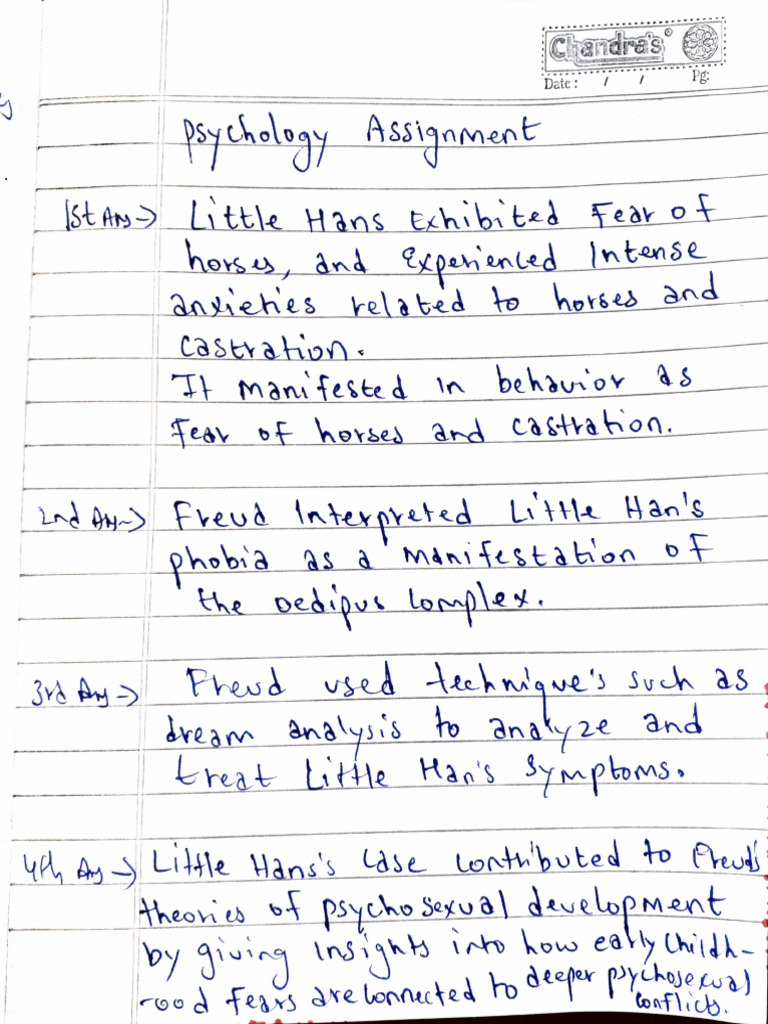 Chandra's®
Date: / / Pg:
Psychology Assignment
1st Ans → Little Hans Exhibited Fear of
horses, and Experienced Intense
anxieties related to horses and
castration.
It manifested in behavior as
Fear of horses and castration.
2nd Ans → Freud Interpreted Little Han's
phobia as a manifestation of
the oedipus complex.
3rd Ans → Freud used technique's such as
dream analysis to analyze and
treat Little Han's symptoms.
4th Ans → Little Hans's case contributed to Freud's
theories of psychosexual development
by giving insights into how early childh-
-ood fears are connected to deeper psychosexual
conflicts.